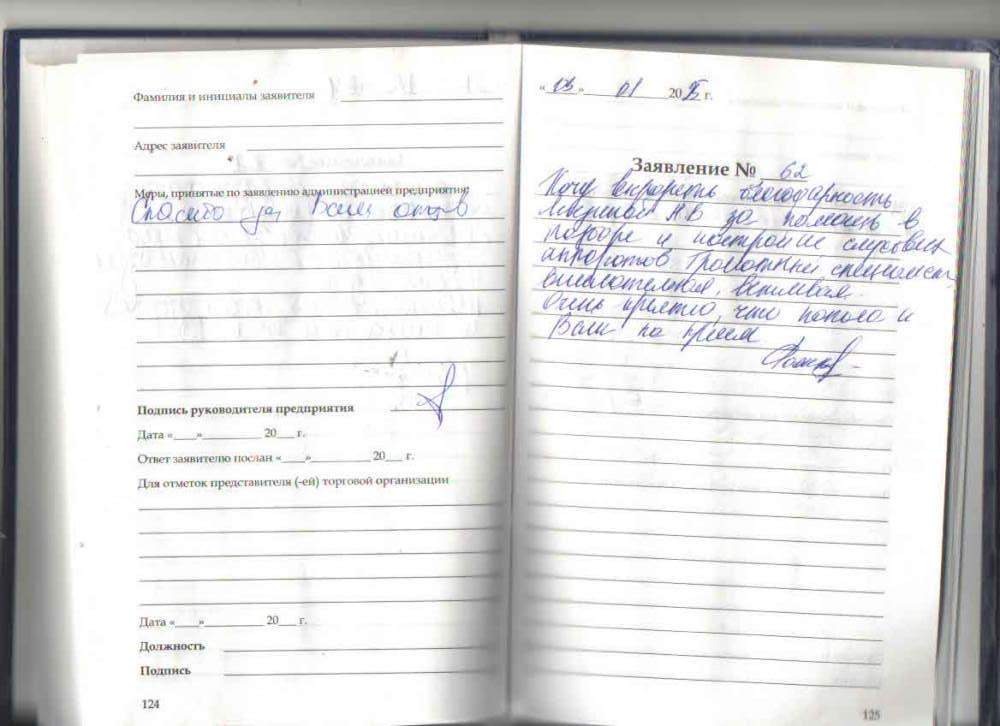 Фамилия и инициалы заявителя
Адрес заявителя
Меры, принятые по заявлению администрацией предприятия:
Спасибо за Ваш отзыв
Подпись руководителя предприятия
Дата «___»__________ 20___ г.
Ответ заявителю послан «___»__________ 20___ г.
Для отметок представителя (-ей) торговой организации
Дата «___»__________ 20___ г.
Должность
Подпись
124
« » 01 20 г.
Заявление № 62
Хочу выразить благодарность
А.В за помощь в
подборе и настройке слуховых
аппаратов. Грамотный специалист
внимательная, вежливая.
Очень приятно, что попала к
Вам на прием
125